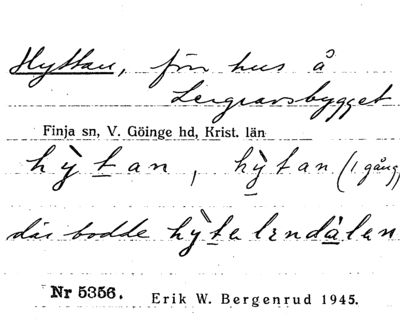 Hyttan, förr hus å
Lergravsbygget
Finja sn, V. Göinge hd, Krist. län
hỳtan, hỳtan (1 gång)
där bodde hỳtelendàlen
Nr 5356. Erik W. Bergenrud 1945.